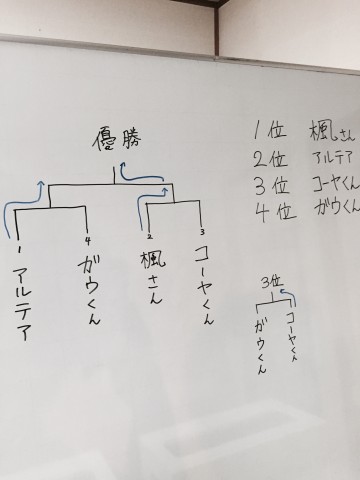 優勝
1 アルテア
4 ガウくん
2 楓さん
3 コーヤくん
1位 楓さん
2位 アルテア
3位 コーヤくん
4位 ガウくん
3位
ガウくん
コーヤくん